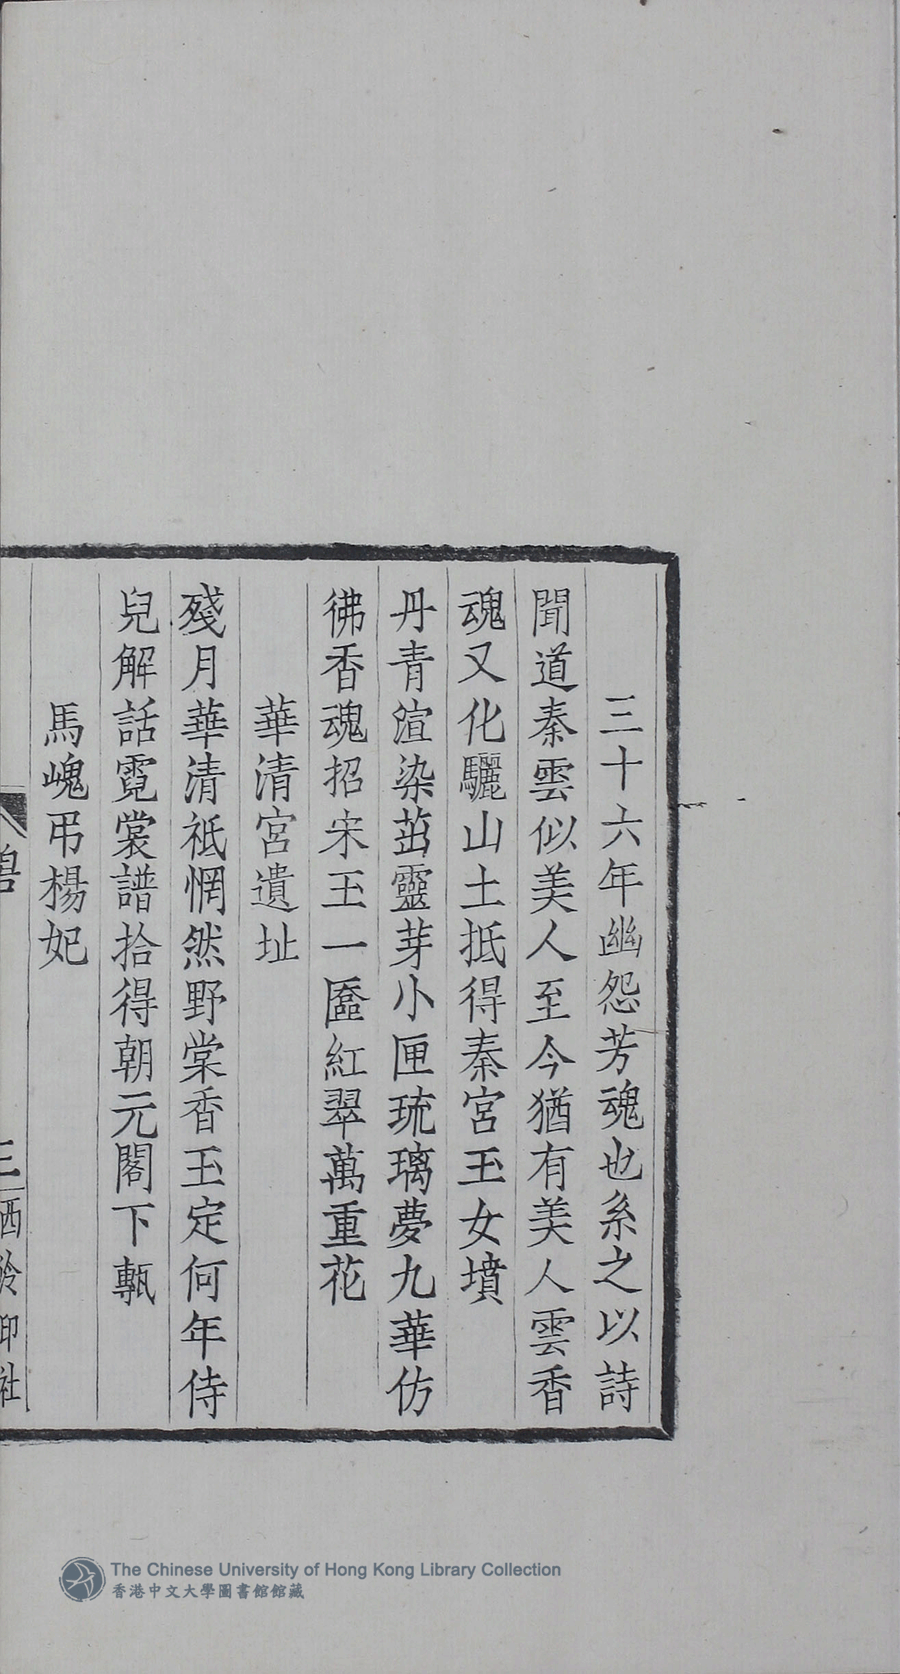 三十六年幽怨芳魂也系之以詩
聞道秦雲似美人至今猶有美人雲香
魂又化驪山土抵得秦宮玉女墳
丹青渲染茁靈芽小匣琉璃夢九華仿
彿香魂招宋玉一匳紅翠萬重花
華清宮遺址
殘月華清祗惘然野棠香玉定何年侍
兒解話霓裳譜拾得朝元閣下甎
馬嵬弔楊妃
三
西泠印社
The Chinese University of Hong Kong Library Collection
香港中文大學圖書館館藏